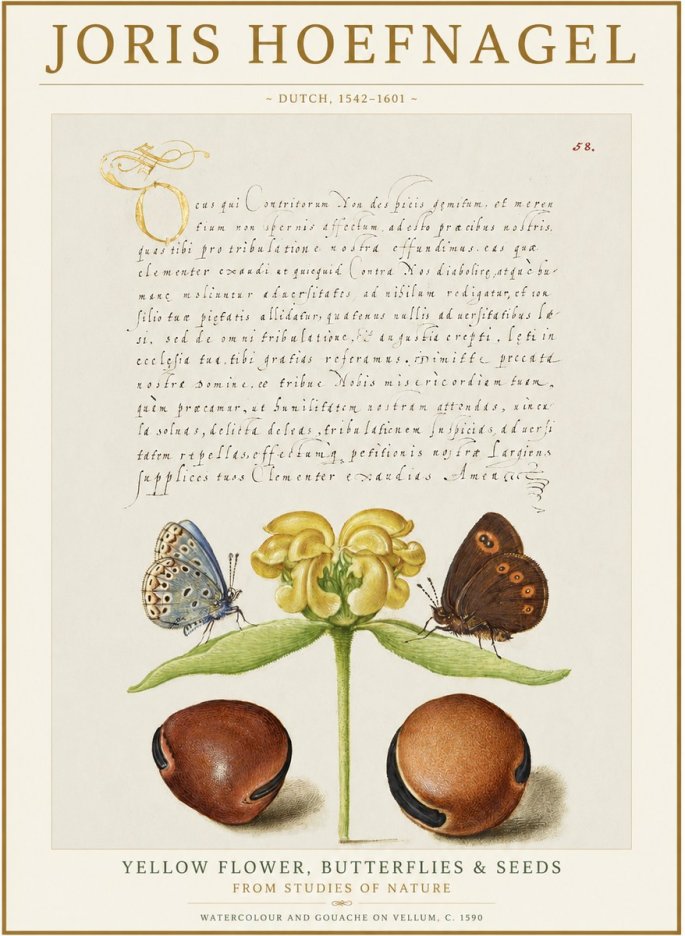 JORIS HOEFNAGEL
~ DUTCH, 1542–1601 ~
58.
Oeus qui Contritorum Non despicis gemitum, et meren
tium non spernis affectum, adesto præcibus nostris,
quas tibi pro tribulatione nostra effundimus. eas quæ
clementer exaudi ut quicquid Contra Nos diabolicę, atquè hu-
manę moliuntur aduersitates, ad nihilum redigatur, et con
silio tuæ pietatis allidatur, quatenus nullis aduersitatibus læ
si, sed de omni tribulatione, & angustia erepti, lęti in
ecclesia tua, tibi gratias referamus. Dimitte peccata
nostra Domine, et tribue Nobis misericordiam tuam,
quèm præcamur, ut humilitatem nostram attendas, uincu-
la soluas, delicta deleas, tribulationem Inspicias, aduersi
tatem repellas, effectumq petitionis nostræ Largiens
supplices tuos Clementer exaudias Amen
YELLOW FLOWER, BUTTERFLIES & SEEDS
FROM STUDIES OF NATURE
WATERCOLOUR AND GOUACHE ON VELLUM, C. 1590